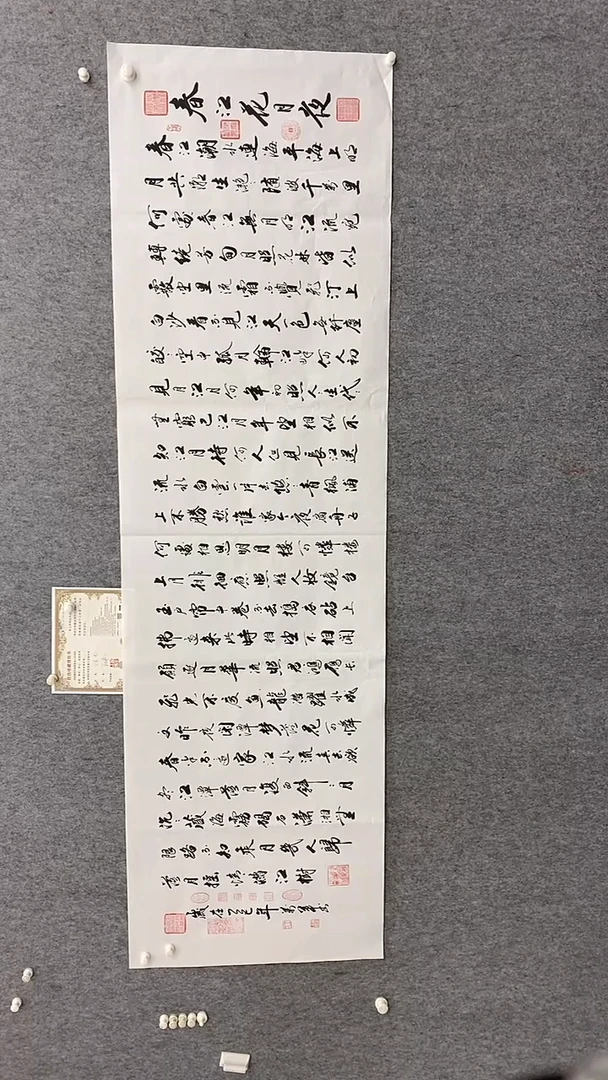 春江花月夜
春江潮水連海平海上明
月共潮生灩灩随波千萬里
何處春江無月明江流宛
轉繞芳甸月照花林皆似
霰空里流霜不覺飛汀上
白沙看不見江天一色無纤塵
皎皎空中孤月輪江畔何人初
見月江月何年初照人人生代代
無窮已江月年年望相似不
知江月待何人但見長江送
流水白雲一片去悠悠青楓浦
上不勝愁誰家今夜扁舟子
何處相思明月樓可憐樓
上月排徊應照離人妝鏡台
玉戶帘中卷不去搗衣砧上
拂還来此時相望不相聞
願逐月華流照君鴻雁長
飛光不度魚龍潛躍水成
文昨夜閑潭夢落花可憐
春半不還家江水流春去欲
盡江潭落月復西斜斜月
沉沉藏海霧碣石瀟湘無
限路不知乘月幾人歸
落月摇情满江樹
歲在乙巳年